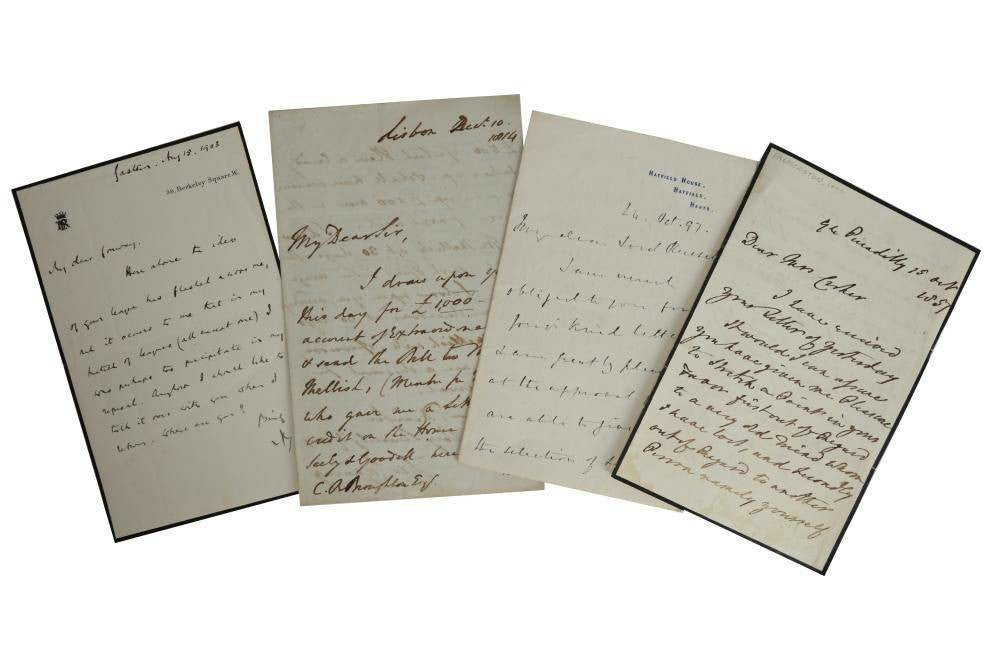 Gastein. Aug 18. 1903
38, Berkeley Square, W.
My dear
Here alone the idea
of your league has flashed across me,
and it occurs to me that in my
hatred of leagues (all except one) I
was perhaps too precipitate in my
refusal. Anyhow I should like to
talk it over with you when I
return. Where are you?
Lisbon Decr. 10.
1814
My Dear Sir,
I draw upon yo
this day for £1000 -
account of Extraord
& send the Bill to
Mellish, (Member for
who gave me a
credit on the House
Seely & Goodall here
C. A. Broughton Esqr
Hatfield House,
Hatfield,
Herts.
24. Oct. 97.
My dear Lord Russell
I am much
obliged to you for
your kind letter
I am greatly pleas
at the approval
are able to
the selection of
94 Piccadilly 15
1857
Dear Mrs
I have received
your Letter of Yesterday
It would I can assure
you have given me Pleasure
to Stretch a Point in your
Favor first out of Regard
to a very old Friend whom
I have lost, and secondly
out of Regard to another
Person namely yourself